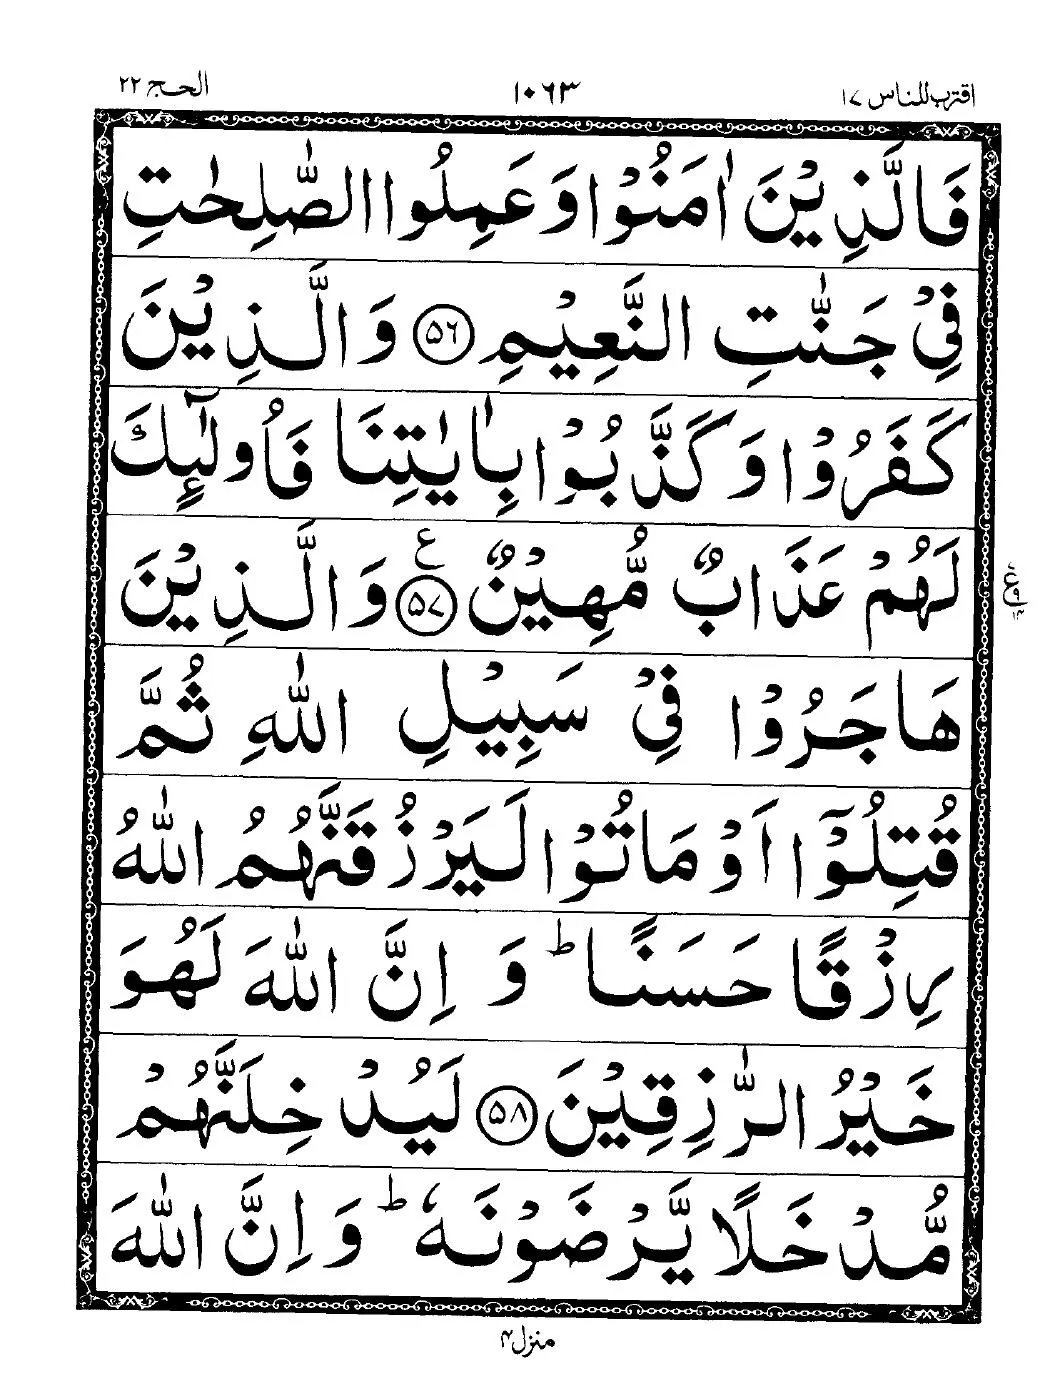 اقترب للناس ١٧ ١٠٦٣ الحج ٢٢
فَالَّذِیْنَ اٰمَنُوْا وَ عَمِلُوا الصّٰلِحٰتِ
فِیْ جَنّٰتِ النَّعِیْمِ ۵۶ وَ الَّذِیْنَ
كَفَرُوْا وَ كَذَّبُوْا بِاٰیٰتِنَا فَاُولٰٓىِٕكَ
لَهُمْ عَذَابٌ مُّهِیْنٌ ۵۷ ع وَ الَّذِیْنَ
هَاجَرُوْا فِیْ سَبِیْلِ اللّٰهِ ثُمَّ
قُتِلُوْۤا اَوْ مَاتُوْا لَیَرْزُقَنَّهُمُ اللّٰهُ
رِزْقًا حَسَنًا ؕ وَ اِنَّ اللّٰهَ لَهُوَ
خَیْرُ الرّٰزِقِیْنَ ۵۸ لَیُدْخِلَنَّهُمْ
مُّدْخَلًا یَّرْضَوْنَهٗ ؕ وَ اِنَّ اللّٰهَ
منزل ۴